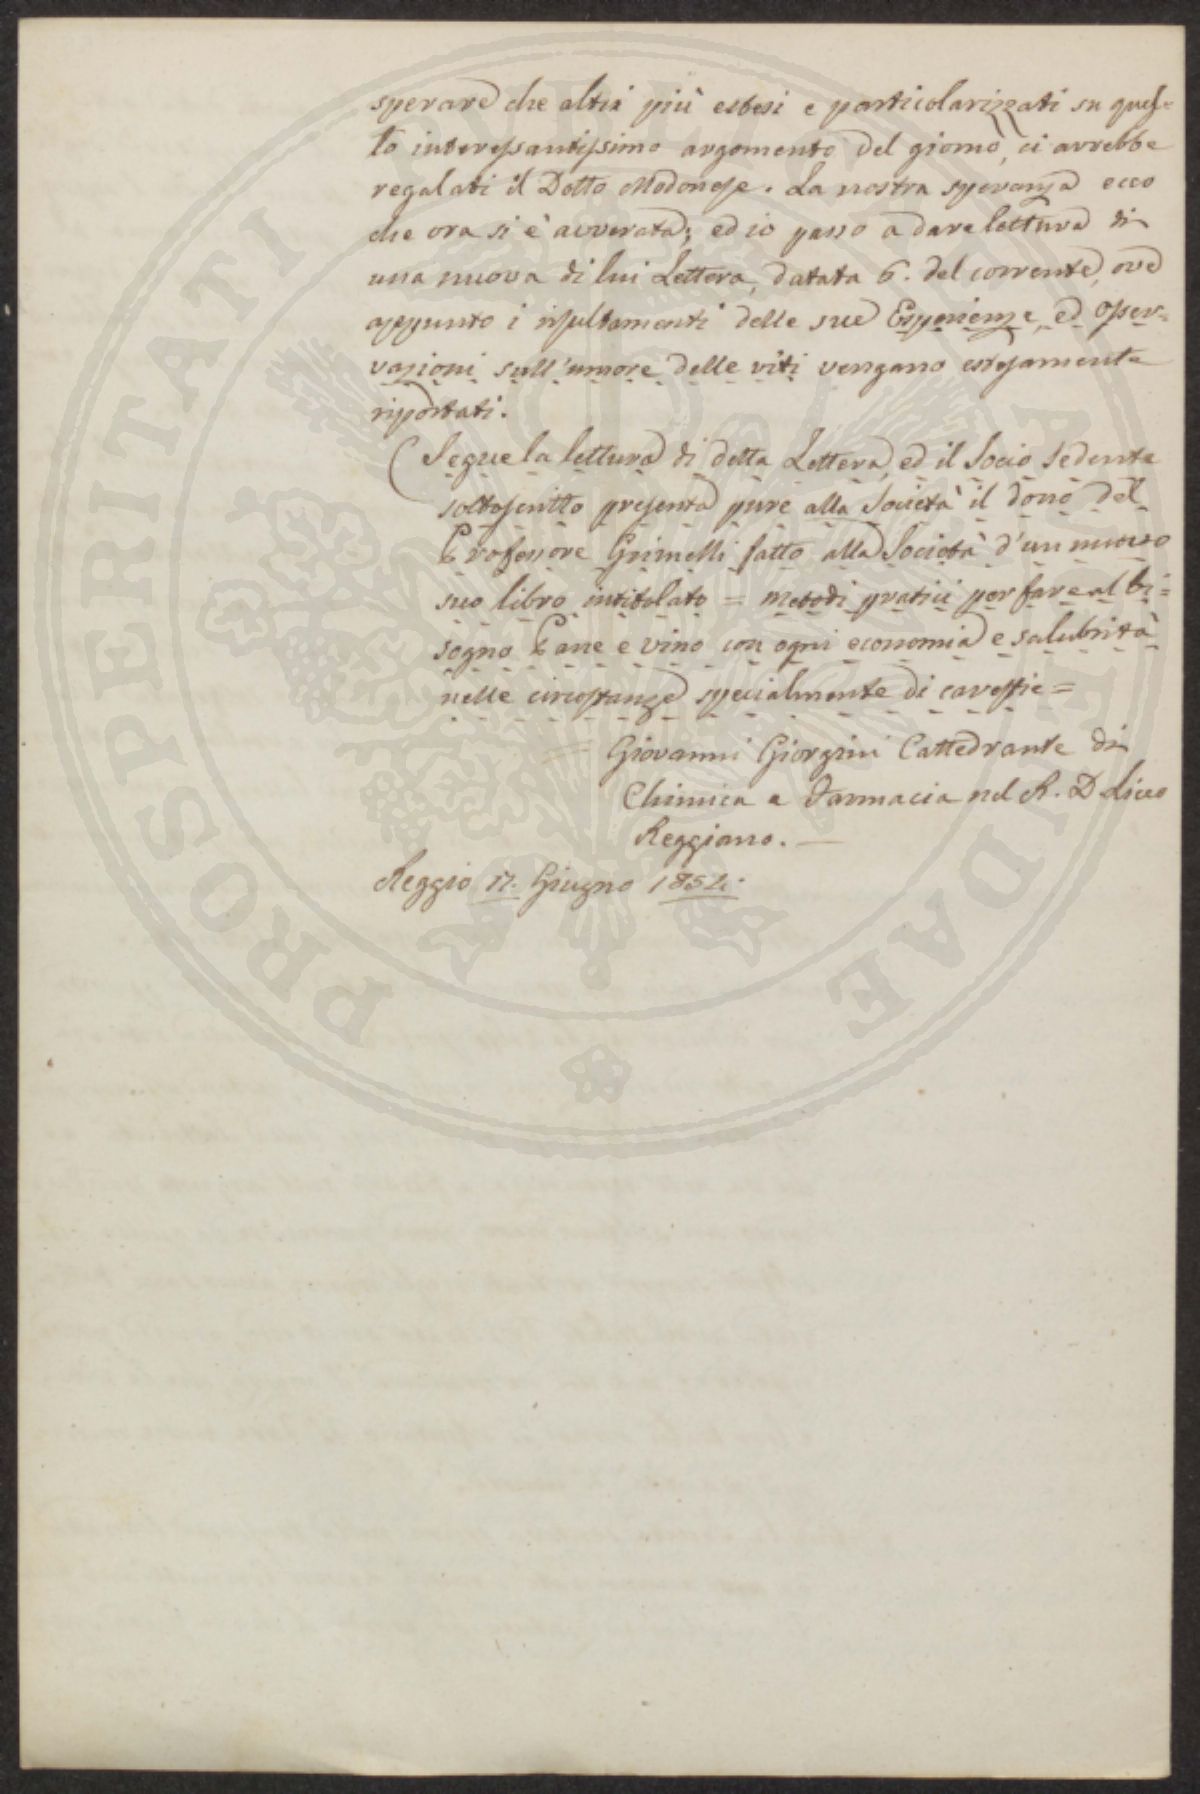 sperare che altri più estesi e particolarizzati su ques=
to interessantissimo argomento del giorno, ci avrebbe
regalati il Dotto Modonese. La nostra speranza ecco
che ora si è avverata; ed io passo a dare lettura di
una nuova di lui Lettera, datata 6. del corrente, ove
appunto i risultamenti delle sue Esperienze, ed Osser=
vazioni sull'umore delle viti vengano estesamente
riportati.
(Segue la lettura di detta Lettera, ed il Socio sedente
sottoscritto presenta pure alla Società il dono del
Professore Grimelli fatto alla Società d'un nuovo
suo libro intitolato = metodi pratici per fare al bi=
sogno Pane e vino con ogni economia e salubrità
nelle circostanze specialmente di carestie =
Giovanni Giorgini Cattedrante di
Chimica e Farmacia nel R. D. Liceo
Reggiano. —
Reggio 17. Giugno 1852.
PROSPERITATI PUBLICAE AUGENDAE